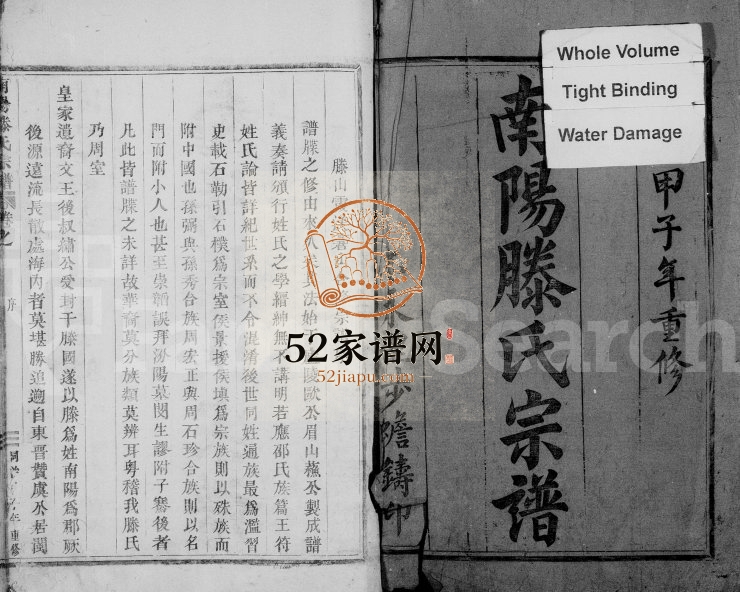 Whole Volume
Tight Binding
Water Damage
甲子年重修
南陽滕氏宗譜
少蟾鑄印
滕山
譜牒之修由來
義奏請頒行姓氏之學縉紳無不講明若應邵氏族篇王符
姓氏論皆詳紀世系而不令混淆後世同姓通族最爲濫習
史載石勒引石樸爲宗室侯景援侯瑱爲宗族則以殊族而
附中國也孫弼與孫秀合族周宏正與周石珍合族則以名
門而附小人也甚至崇韜誤拜汾陽墓閔生謬附子騫後者
凡此皆譜牒之未詳故華裔莫分族類莫辨耳粵稽我滕氏
乃周室
皇家遺裔文王後叔繡公受封于滕國遂以滕爲姓南陽爲郡厥
後源遠流長散處海內者莫堪勝追遡自東晉贊虞公居閩
南陽滕氏宗譜
序
重修
52家谱网
52jiapu.com
Search